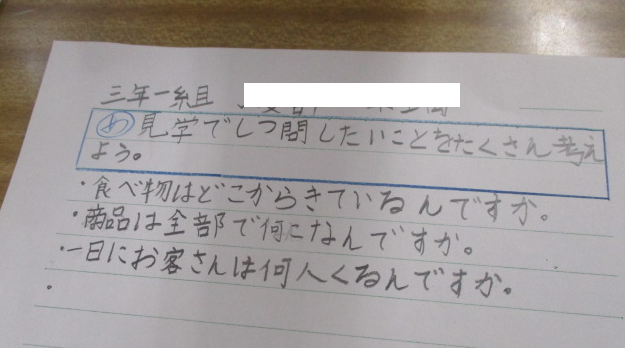 三年一組
め 見学でしつ問したいことをたくさん考え
よう。
・食べ物はどこからきているんですか。
・商品は全部で何こなんですか。
・一日にお客さんは何人くるんですか。
・